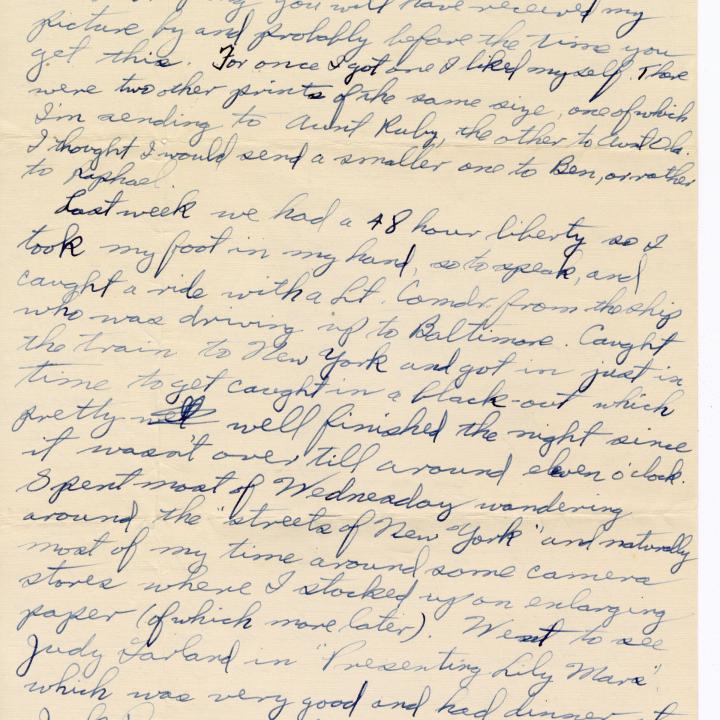 you will have received my
picture by and probably before the time you
get this. For once I got one I liked myself. There
were two other prints of the same size, one of which
I'm sending to Aunt Ruby, the other to Aunt Ola.
I thought I would send a smaller one to Ben, or rather
to Raphael.
Last week we had a 48 hour liberty so I
took my foot in my hand, so to speak, and
caught a ride with a Lt. Comdr. from the ship
who was driving up to Baltimore. Caught
the train to New York and got in just in
time to get caught in a black-out which
pretty well finished the night since
it wasn't over till around eleven o'clock.
Spent most of Wednesday wandering
around the "streets of New York" and naturally
most of my time around some camera
stores where I stocked up on enlarging
paper (of which more later). Went to see
Judy Garland in "Presenting Lily Mars"
which was very good and had dinner